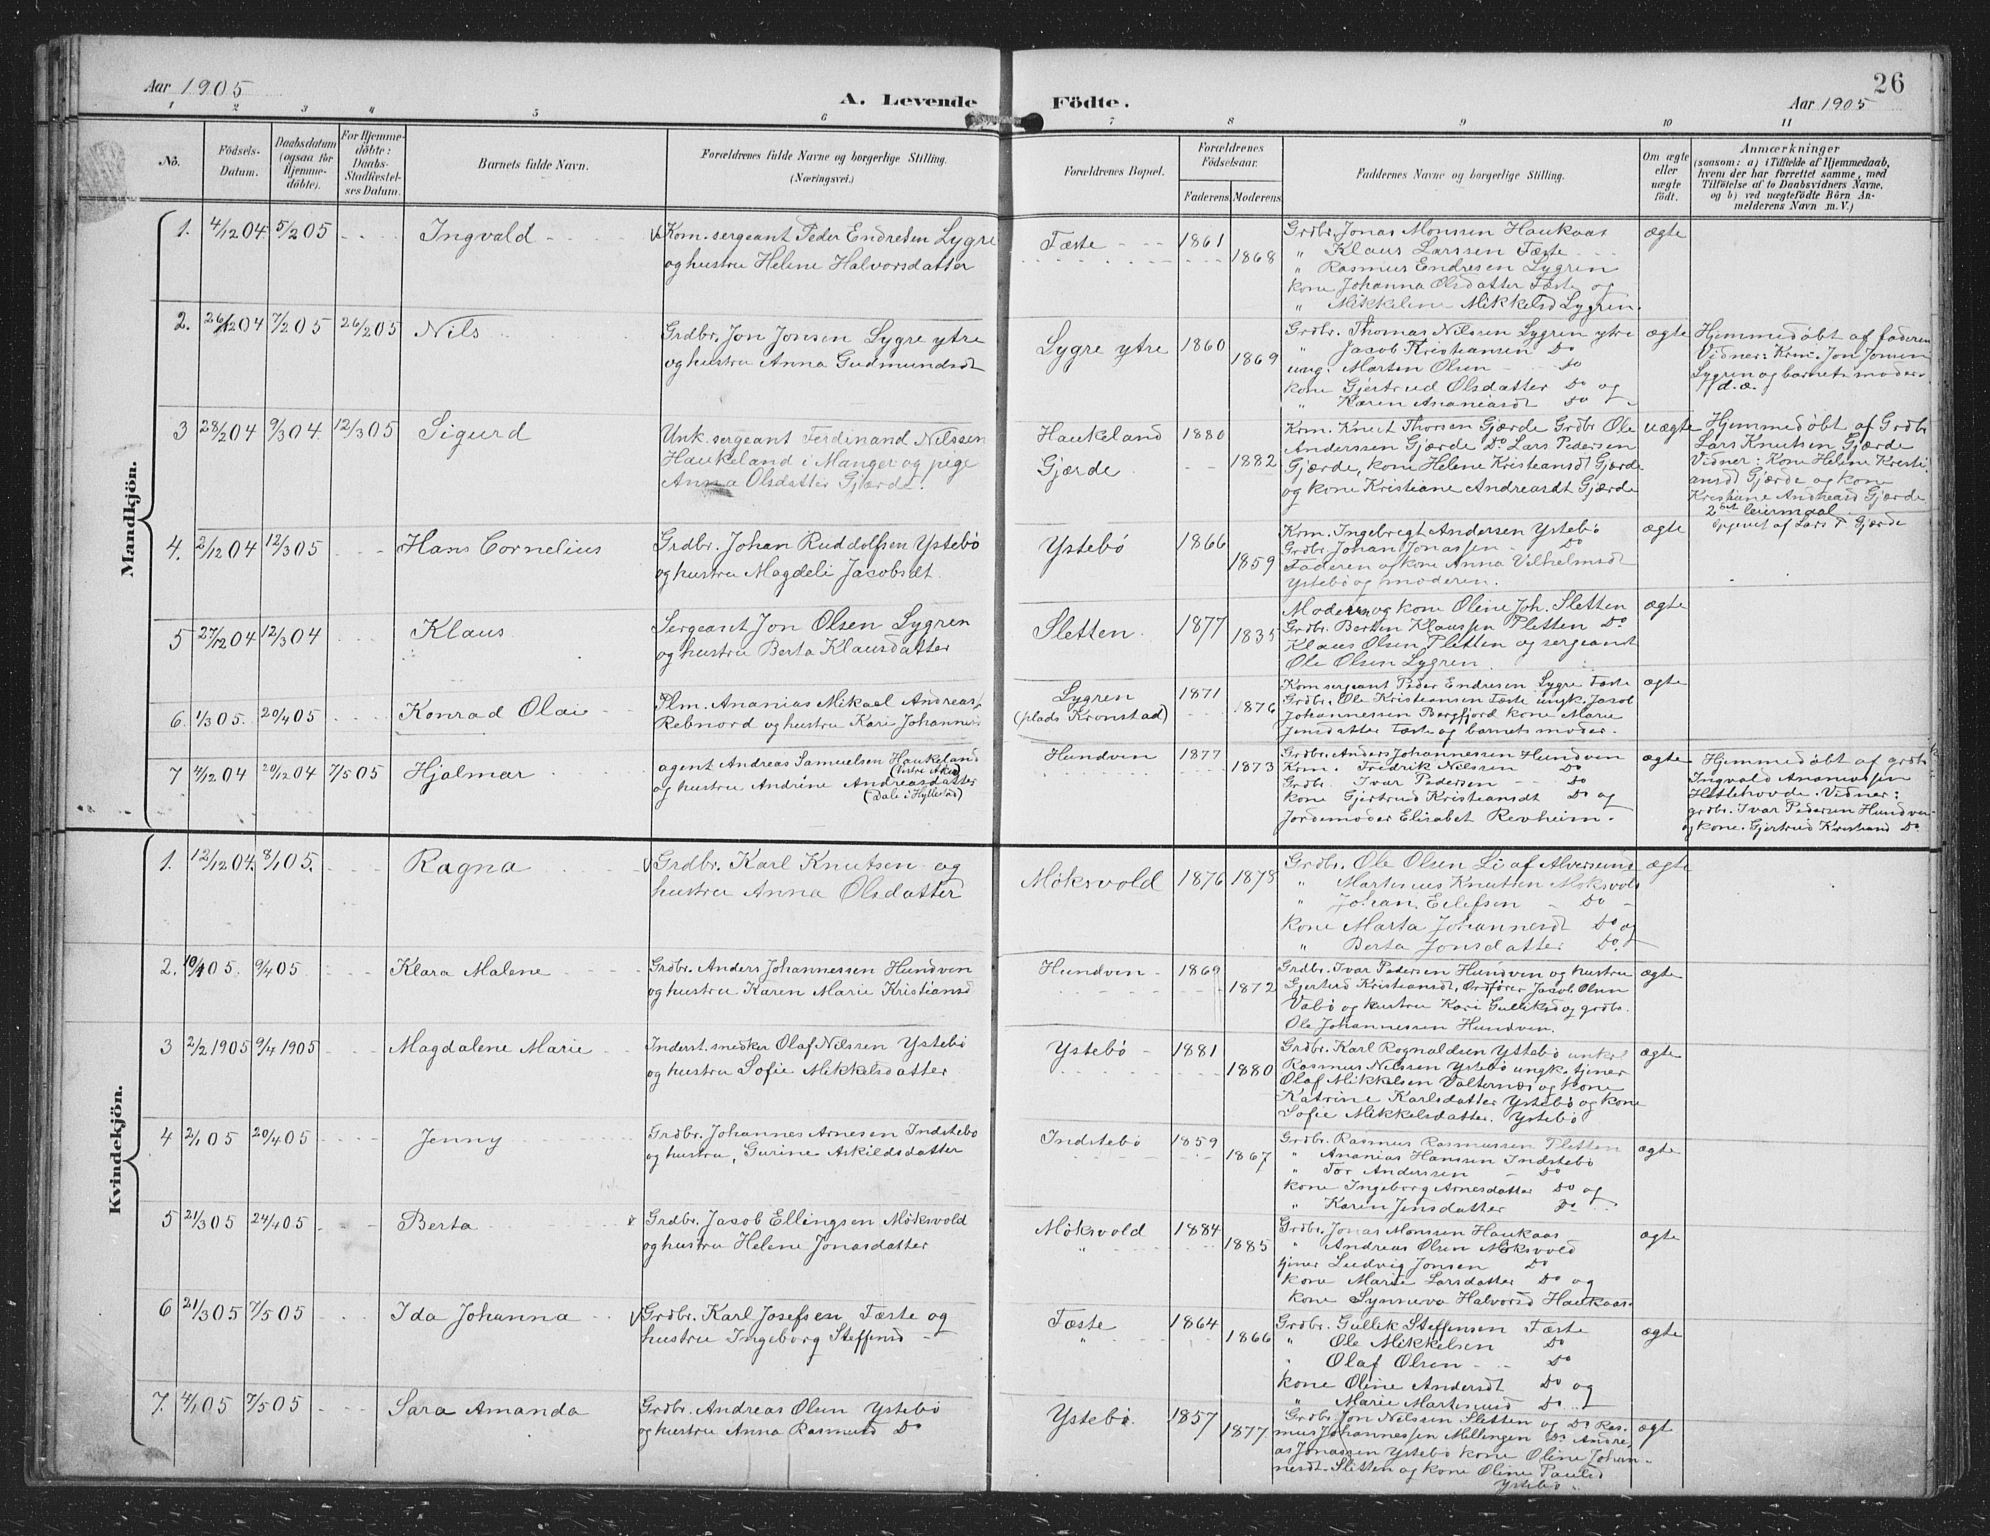 Aar 1905
A. Levende Födte.
26
Aar 1905
1 2 3 4 5 6 7 8 9 10 11
No.
Födsels-
Datum.
Daabsdatum
(ogsaa for
Hjemme-
döbte).
For Hjemme-
döbte:
Daabs-
Stadfæstel-
ses Datum.
Barnets fulde Navn.
Forældrenes fulde Navne og borgerlige Stilling.
(Næringsvei.)
Forældrenes Bopæl.
Forældrenes
Födselsaar.
Faderens Moderens
Faddernes Navne og borgerlige Stilling.
Om ægte
eller
uægte
födt.
Anmærkninger
(saasom: a) i Tilfælde af Hjemmedaab,
hvem der har forrettet samme, med
Tilföielse af to Daabsvidners Navne,
og b) ved uægtefödte Börn An-
melderens Navn m. V.)
Mandkjön.
1. 4/12 04 5/2 05 Ingvald
Kom. sergeant Peder Endresen Lygre
og hustru Helene Halvorsdatter
Fæste 1861
1868
Grdbr. Jonas Monssen Haukaas
" Klaus Larssen Fæste
" Rasmus Endresen Lygren
kone Johanna Olsdatter Fæste og
" Mikkeline Mikkelsd Lygren.
ægte
2. 26/12 04 7/2 05 26/2 05 Nils
Grdbr. Jon Jonsen Lygre ytre
og hustru Anna Gudmundsdt
Lygre ytre 1860
1869
Grdbr. Thomas Nilssen Lygren ytre
" Jacob Kristiansen Do
ung. Marten Olsen Do
kone Gjertrud Olsdatter Do og
" Karen Ananiasdt Do
ægte
Hjemmedøbt af faderen
Vidner: Krm. Jon Jonsen
Lygren og barnets moder
d. æ.
3 28/2 04 9/3 04 12/3 05 Sigurd
Unk. sergeant Ferdinand Nilssen
Haukeland i Manger og pige
Anna Olsdatter Gjærde.
Haukeland 1880
Gjærde 1882
Kom. Knut Thorsen Gjærde Grdbr Ole
Anderssen Gjærde Do. Lars Pedersen
Gjærde, kone Helene Kristiansdt Gjærde
og kone Kristiane Andreasdt Gjærde
uægte
Hjemmedøbt af Grdbr
Lars Knutsen Gjærde
Vidner: Kone Helene Kristi-
ansdt Gjærde og kone
Kristiane Andreasd Gjærde
2det leiermaal
Opgivet af Lars P Gjærde
4. 2/12 04 12/3 05 Hans Cornelius
Grdbr. Johan Ruddolfsen Ystebø
og hustru Magdeli Jacobsdt.
Ystebø 1866
1859
Kom. Ingebregt Andersen Ystebø
Grdbr. Johan Jonassen Do
Faderen og kone Anna Vilhelmsdt
Ystebø og moderen.
ægte
5 27/12 04 12/3 04 Klaus
Sergeant Jon Olsen Lygren
og hustru Berta Klausdatter
Sletten. 1877
1835
Moderen og kone Oline Joh. Sletten
Grdbr. Berten Klaussen Sletten Do
Klaus Olsen Sletten og sergeant
Ole Olsen Lygren.
ægte
6. 1/3 05. 20/4 05 Konrad Olai
Plm. Ananias Mikael Andreas
Rebnord og hustru Kari Johannes
Lygren 1871
(plads Kronstad) 1876
Kom sergeant Peder Endresen Lygre Fæste
Grdbr. Ole Kristiansen Fæste ungk. Jacob
Johannessen Bergfjord kone Marie
Jensdatter Fæste og barnets moder.
ægte
7 4/12 04 20/12 04 7/5 05 Hjalmar
agent Andreas Samuelsen Haukeland
og hustru Andrine Andreasdatter
(Dale i Hyllestad)
Hundven 1877
1873
Grdbr. Anders Johannessen Hundven
Kom. Fredrik Nilssen Do
Grdbr. Ivar Pedersen Do
kone Gjertrud Kristiansdt Do og
Jordemoder Elisabet Revheim.
ægte
Hjemmedøbt af grdbr
Ingvald Ananiassen
Hetlehovde. Vidner:
grdbr. Ivar Pedersen Hundven
og kone. Gjertrud Kristiansd Do
Kvindekjön.
1. 12/12 04. 8/1 05. Ragna
Grdbr. Karl Knutsen og
hustru Anna Olsdatter
Möksvold 1876 1878
Grdbr. Ole Olsen Li af Alversund
" Martinus Knutsen Møksvold
" Johan Eilefsen Do
kone Marta Johannesdt Do og
" Berta Jonsdatter Do.
ægte
2. 10/1 05. 9/4 05 Klara Malene
Grdbr. Anders Johannessen Hundven
og hustru Karen Marie Kristiansd
Hundven 1869
1872
Grdbr. Ivar Pedersen Hundven og hustru
Gjertrud Kristiansdt, Ordfører Jacob Olsen
Vabø og hustru Kari Gulliksd og grdbr.
Ole Johannessen Hundven.
ægte
3 2/2 1905 9/4 1905 Magdalene Marie
Inderst. snedker Olaf Nilssen Ystebø
og hustru Sofie Mikkelsdatter
Ystebø 1881
1880
Grdbr. Karl Rognaldsen Ystebø unk.
Rasmus Nilssen Ystebø ungk. tjener
Olaf Mikkelsen Valternæs og kone
Katrine Karlsdatter Ystebø og kone
Sofie Mikkelsdatter. Ystebø
ægte
4 2/1 05 20/4 05 Jenny
Grdbr. Johannes Arnesen Indstebø
og hustru, Gurine Askildsdatter
Indstebø 1859
1867
Grdbr. Rasmus Rasmussen Sletten
" Ananias Hanssen Indstebø
" Tor Anderssen Do
kone Ingeborg Arnesdatter Do og
" Karen Jensdatter Do
ægte
5 21/3 05 24/4 05 Berta
Grdbr. Jacob Ellingsen Møksvold
og hustru Helene Jonasdatter
Møksvold 1884
" 1885
Grdbr. Jonas Monssen Haukaas
" Andreas Olsen Møksvold
tjener Ludvig Jonsen Do
kone Marie Larsdatter Do og
kone Synneva Halvorsd Haukaas
ægte
6 21/3 05 7/5 05 Ida Johanna
Grdbr. Karl Josefsen Fæste og
hustru Ingeborg Steffensd
Fæste 1864
" 1866
Grdbr. Gullik Steffensen Fæste
" Ole Mikkelsen Do
" Olaf Olsen Do
kone Oline Andersdt Do og
" Marie Martinusd Do
ægte
7. 4/1 05 7/5 05 Sara Amanda
Grdbr. Andreas Olsen Ystebø
og hustru Anna Rasmusd Do
Ystebø. 1857
1877
Grdbr. Jon Nilssen Sletten og Do Ras-
mus Johannessen Millingen Do Andre-
as Jonassen Ystebø kone Oline Johan-
nesdt. Sletten og kone Oline Paulsd
Ystebø
ægt